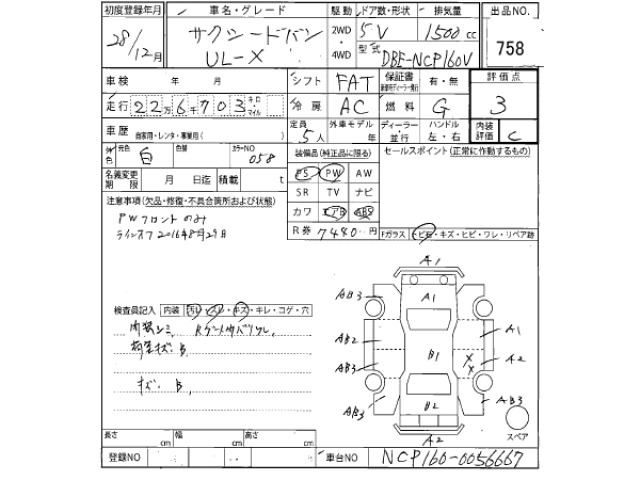 初度登録年月 車名・グレード 駆動 ドア数・形状 排気量 出品NO.
28/12月 サクシードバン 2WD 5V 1500cc 758
UL-X 4WD 型式 DBE-NCP160V
車検 年 月 シフト FAT 保証書 有・無 評価点
走行 22万6千703キロ マイル 冷房 AC 燃料 G 3
車歴 自家用・レンタ・事業用( ) 定員 5人 外車モデル 年 ディーラー 並行 ハンドル 左・右 内装評価 C
外色 元色 白 色替 カラーNO 058 装備品(純正品に限る) セールスポイント(正常に作動するもの)
名義変更期限 月 日迄 積載 t PS PW AW
注意事項(欠品・修復・不具合箇所および状態) SR TV ナビ
PWフロントのみ カワ エアB ABS
ラインオフ2016年8月29日 R券 7480円 Fガラス トビ石・キズ・ヒビ・ワレ・リペア跡
A1
検査員記入 内装 汚レ・スレ・キズ・キレ・コゲ・穴 AB3 A1 AB3
内装シミ、Rゲート内バリワレ A1
AB2 B1 A2
キズ、B AB3
AB3 B2 AB3
A2 スペア
長さ cm 幅 cm 高さ cm
登録NO 車台NO NCP160-0056667